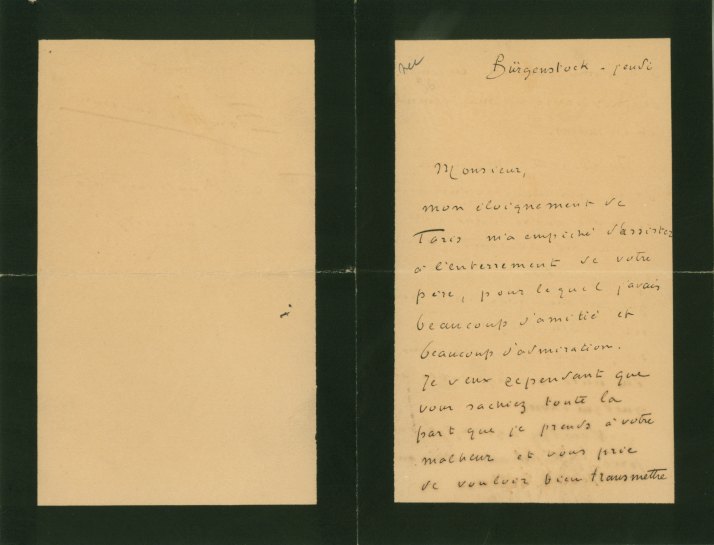 Bürgenstock - jeudi
Monsieur,
mon éloignement de
Paris m'a empêché d'assister
à l'enterrement de votre
père, pour lequel j'avais
beaucoup d'amitié et
beaucoup d'admiration.
Je veux cependant que
vous sachiez toute la
part que je prends à votre
malheur et vous prie
de vouloir bien transmettre